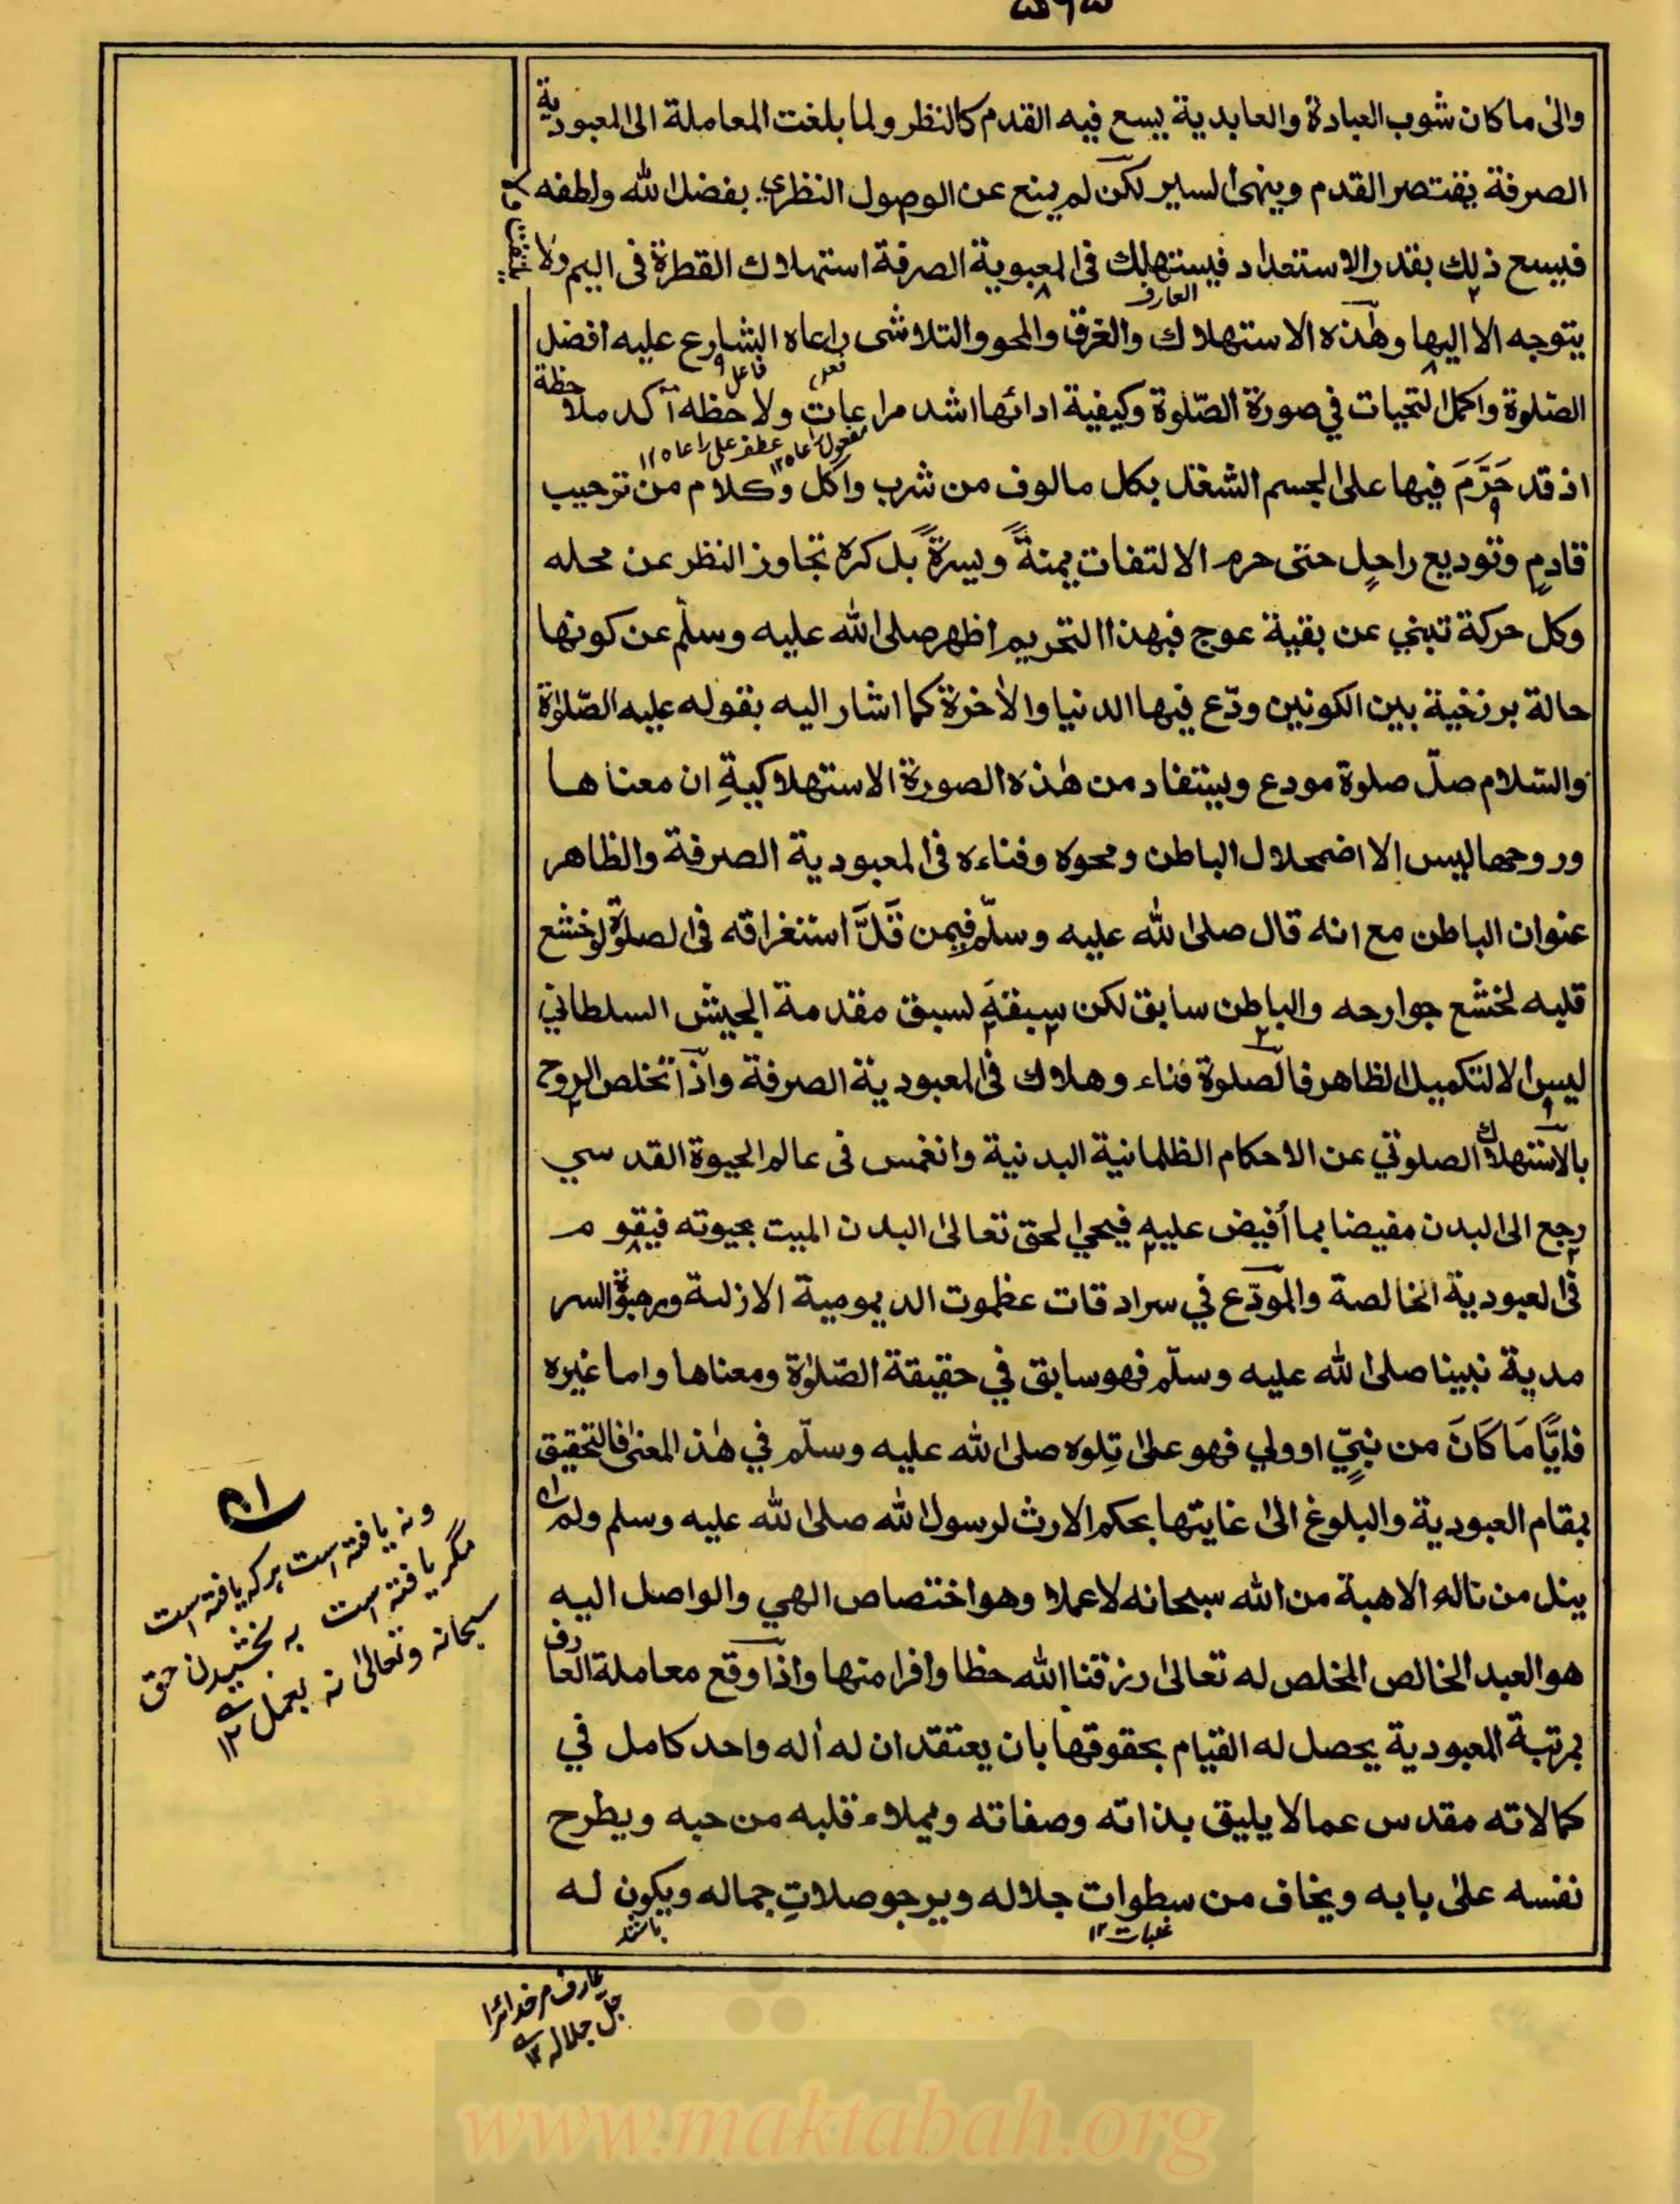 والى ما كان شوب العبادة والعابدية يسع فيه القدم كالنظر ولما بلغت المعاملة الى المعبودية
الصرفة يقتصر القدم وينهى السير لكن لم يمنع عن الوصول النظري بفضل الله ولطفه
فيسع ذلك بقدر الاستعداد فيستهلك فى المعبوية الصرفة استهلاك القطرة فى اليم ولا يلتفت ولا
العارف
يتوجه الا اليها وهذه الاستهلاك والغرق والمحو والتلاشى راعاه الشارع عليه افضل
فاعل
الصلوة واكمل التحيات في صورة الصّلوة وكيفية ادائها اشد مراعات ولاحظه آكد ملاحظة
مفعول راعاه ١٢ عطف على راعاه ١٢
اذ قد حَرَّمَ فيها على الجسم الشغل بكل مالوف من شرب واكل وكلام من ترحيب
قادمٍ وتوديع راحلٍ حتى حرم الالتفات يمنةً ويسرةً بل كره تجاوز النظر عن محله
وكل حركة تبنى عن بقية عوج فبهذا التحريم اظهر صلى الله عليه وسلّم عن كونها
حالة برزخية بين الكونين ودّع فيها الدنيا والاخرة كما اشار اليه بقوله عليه الصّلوٰة
والسّلام صلّ صلوة مودع ويستفاد من هٰذه الصورة الاستهلاكيةِ ان معناها
وروحها ليس الا اضمحلال الباطن ومحوه وفناءه فى المعبودية الصرفة والظاهر
عنوان الباطن مع انه قال صلى الله عليه وسلّم فيمن قَلَّ استغراقه فى الصلوة لو خشع
قلبه لخشع جوارحه والباطن سابق لكن سبقهَ لسبق مقدمة الجيش السلطاني
ليس الا لتكميل الظاهر فالصلوة فناء وهلاك فى المعبودية الصرفة واذا تخلص الروح
بالاستهلاك الصلوتي عن الاحكام الظلمانية البدنية وانغمس فى عالم الحيوة القدسي
رجع الى البدن مفيضا بما أفيض عليه فيحي الحق تعالىٰ البدن الميت بحيوته فيقوم
فى العبودية الخالصة والمودّع في سرادقات عظموت الديمومية الازلية ومرهبة السر
مدية نبينا صلى الله عليه وسلّم فهو سابق في حقيقة الصّلوٰة ومعناها واما غيره
فايًّا مَا كَانَ من نبيٍّ اوولي فهو على تِلوه صلى الله عليه وسلّم في هٰذ المعنى فالتحقيق
بمقام العبودية والبلوغ الىٰ غايتها بحكم الارث لرسول الله صلى الله عليه وسلم ولم
ينل من ناله الا هبة من الله سبحانه لا عملا وهو اختصاص الهي والواصل اليه
هو العبد الخالص المخلص له تعالىٰ رزقنا الله حظا وافرا منها واذا وقع معاملة العارف
بمرتبة المعبودية يحصل له القيام بحقوقها بان يعتقد ان له اله واحد كامل في
كمالاته مقدس عما لا يليق بذاته وصفاته ويملاء قلبه من حبه ويطرح
نفسه علىٰ بابه ويخاف من سطوات جلاله ويرجو صلاتِ جماله ويكون له
غلبات ١٢
باشند
ونه يافته است هر كه يافته است
مگر يافته است به بخشيدن حق
سبحانه وتعالىٰ نه بعمل ١٢
عارف مر خدائرا
جل جلاله ١٢
www.maktabah.org